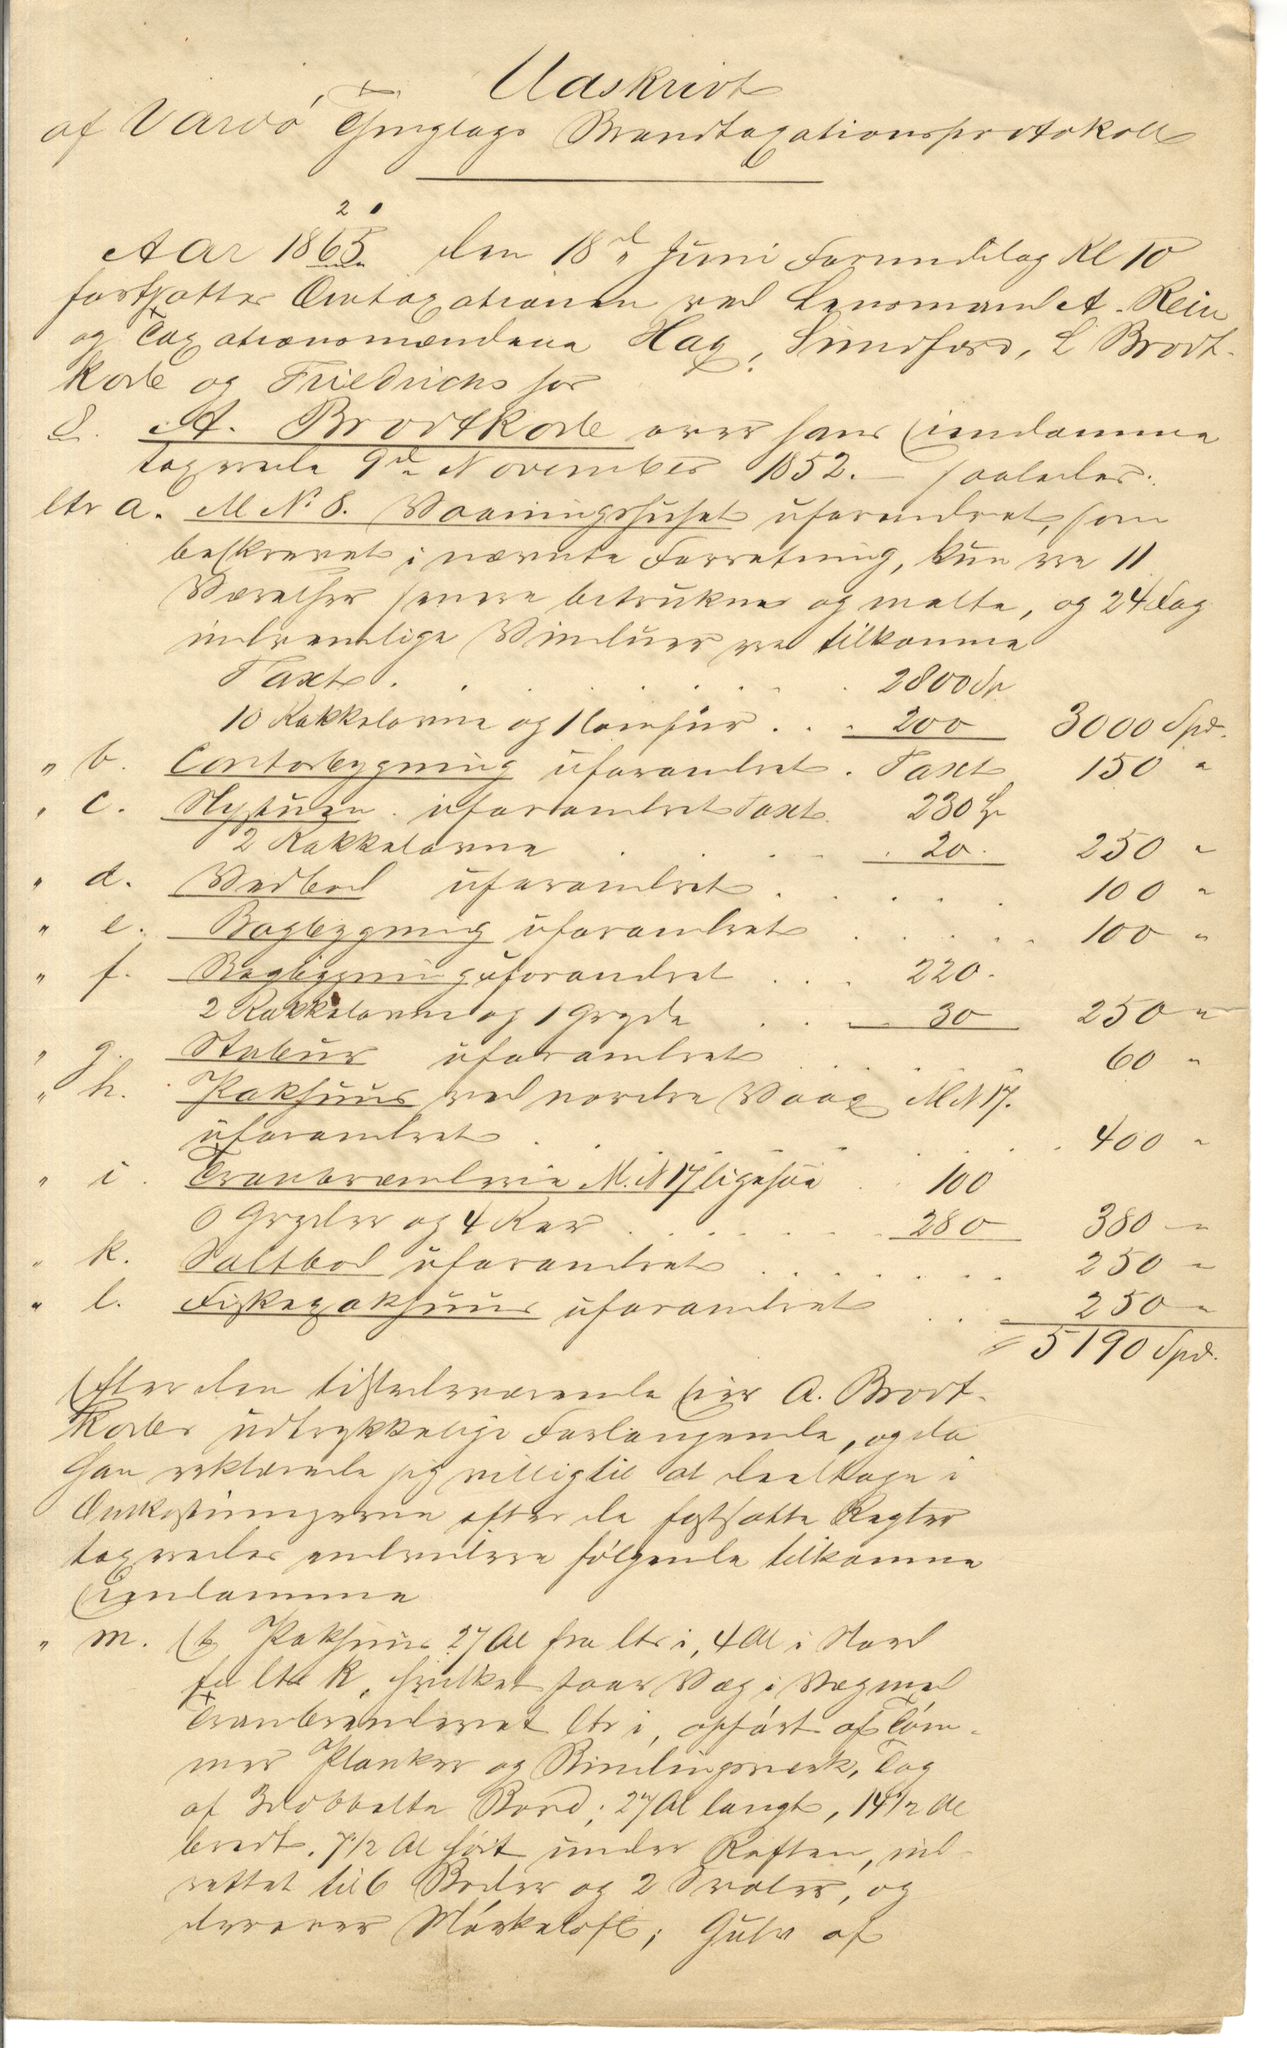 Udskrivt
af Vardö Thinglags Brandtaxationsprotokoll
2
Aar 1865 den 18d Juni Formiddag Kl 10
fortsattes Omtaxationen ved Lensmand A. Rein
og Taxationsmændene Hag, Sundfærd, L Brodt-
korb og Friedrichs hos
8. A. Brodtkorb over hans Eiendomme
taxerede 9de November 1852. – saaledes:
Ltr a. M No 8. Vaaningshuset uforandret, som
beskrevet i nævnte Forretning, kun ere 11
Værelser senere betrukne og malte, og 24 Fag
indvendige Vinduer ere tilkomne
Taxt . . . . . 2800 Sp
10 Kakkelovne og 1 Comfur . . . 200 3000 Spd.
" b. Contorbygning uforandret . Taxt 150 "
" c. Nystuen uforandret Taxt. 230 Sp
2 Kakkelovne . . . . 20. 250 "
" d. Vedbod uforandret . . . . . 100 "
" e. Bagbygning uforandret . . . . . 100 "
" f. Bagbygning uforandret . . . 220.
2 Kakkelovne og 1 Gryde . . . 30 250 "
" g. Stabur uforandret . . . . . 60 "
" h. Pakhuus ved nordre Vaag M N 17.
uforandret . . . . . 400 "
" i. Tranbrænderie M. N 17 ligesaa . . 100
6 Gryder og 4 Kar . . . . . 280 380 "
" k. Saltbod uforandret . . . . . 250 "
" l. Fiskepakhuus uforandret . . . 250 "
5190 Spd.
Efter den tilstedeværende Eier A. Brodt-
korbs udtrykkelige Forlangende, og da
han erklærede sig villig til at deeltage i
Omkostningerne efter de fastsatte Regler
taxeredes endvidere følgende tilkomne
Eiendomme
" m. Et Pakhuus 27 Al fra ltr i, 4 Al i Nord
fra ltr k, hvilket staar Væg i Væg med
Tranbrænderiet ltr i, opført af Tøm-
mer Planker og Bindingsverk, Tag
af 3 dobbelte Bord; 27 Al langt, 14 1/2 Al
bredt. 7 1/2 Al høit under Raften, ind-
rettet til 6 Boder og 2 Svaler, og
derover Mørkeloft; Gulv af